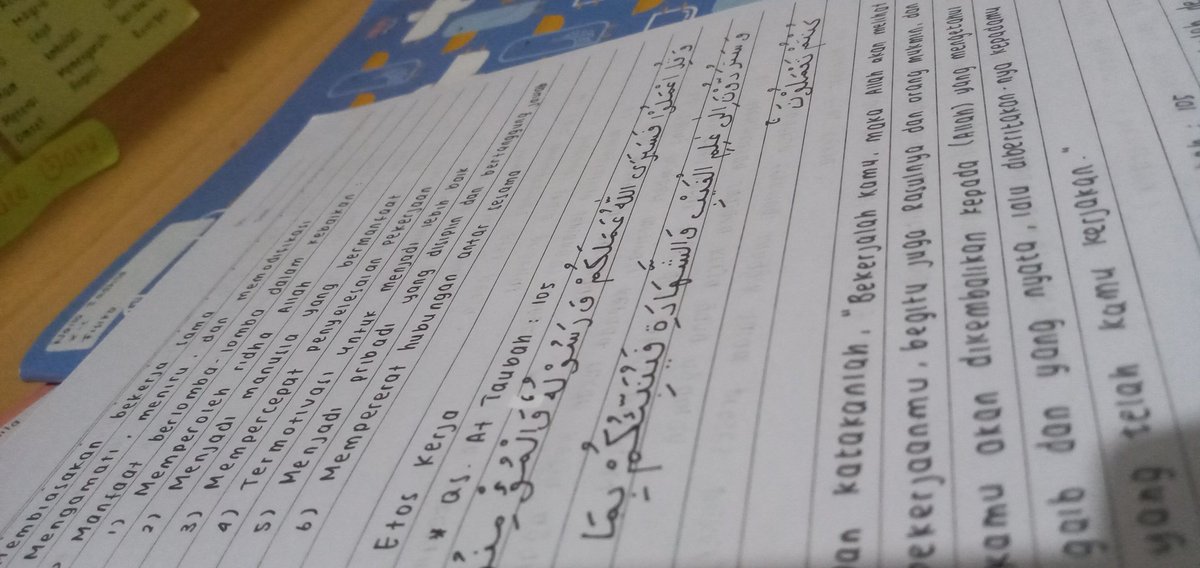 Membiasakan bekerja sama
Mengamati, meniru, dan memodifikasi
Manfaat berlomba-lomba dalam kebaikan :
1) Memperoleh ridha Allah
2) Menjadi manusia yang bermanfaat
3) Mempercepat penyelesaian pekerjaan
4) Termotivasi untuk menjadi lebih baik
5) Menjadi pribadi yang disiplin dan bertanggung jawab
6) Mempererat hubungan antar sesama
Etos Kerja
* QS. At Taubah : 105
وَقُلِ اعْمَلُوْا فَسَيَرَى اللّٰهُ عَمَلَكُمْ وَرَسُوْلُهٗ وَالْمُؤْمِنُوْ
وَسَتُرَدُّوْنَ اِلٰى عٰلِمِ الْغَيْبِ وَالشَّهَادَةِ فَيُنَبِّئُكُمْ بِمَا
كُنْتُمْ تَعْمَلُوْنَ
an katakanlah, "Bekerjalah kamu, maka Allah akan melihat
pekerjaanmu, begitu juga Rasulnya dan orang mukmin, dan
kamu akan dikembalikan kepada (Allah) yang mengetahui
gaib dan yang nyata, lalu diberitakan-nya kepadamu
yang telah kamu kerjakan."
105